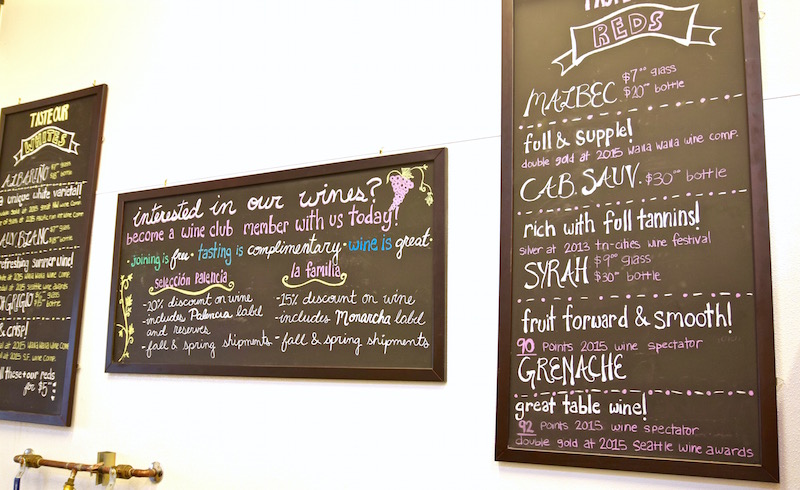 TASTE OUR
WHITES
ALBARIÑO
a unique white varietal!
BLANC
refreshing summer wine!
& crisp!
all these + our reds
for $5
interested in our wines?
become a wine club member with us today!
joining is free · tasting is complimentary · wine is great·
selección palencia
-20% discount on wine
-includes Palencia label
and reserves
-fall & spring shipments
la familia
-15% discount on wine
-includes Monarcha label
-fall & spring shipments
TASTE OUR
REDS
MALBEC $7.00 glass
$20.00 bottle
full & supple!
double gold at 2015 walla walla wine comp.
CAB. SAUV. $30.00 bottle
rich with full tannins!
silver at 2013 tri-cities wine festival
SYRAH $9.00 glass
$30.00 bottle
fruit forward & smooth!
90 Points 2015 wine spectator
GRENACHE
great table wine!
92 Points 2015 wine spectator
double gold at 2015 seattle wine awards